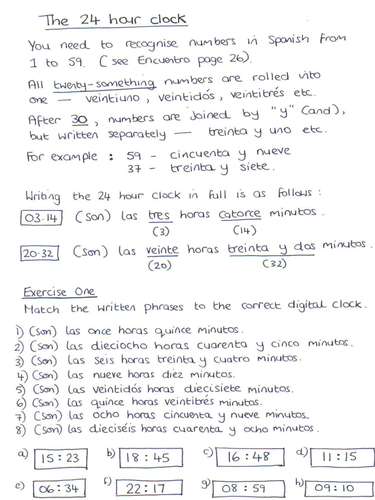 The 24 hour clock
You need to recognise numbers in Spanish from
1 to 59. (see Encuentro page 26).
All twenty-something numbers are rolled into
one — veintiuno, veintidós, veintitrés etc.
After 30, numbers are joined by "y" (and),
but written separately — treinta y uno etc.
For example : 59 - cincuenta y nueve
37 - treinta y siete.
Writing the 24 hour clock in full is as follows :
03.14 (son) las tres horas catorce minutos.
(3) (14)
20.32 (son) las veinte horas treinta y dos minutos.
(20) (32)
Exercise One
Match the written phrases to the correct digital clock.
1) (son) las once horas quince minutos.
2) (son) las dieciocho horas cuarenta y cinco minutos.
3) (son) las seis horas treinta y cuatro minutos.
4) (son) las nueve horas diez minutos.
5) (son) las veintidós horas diecisiete minutos.
6) (son) las quince horas veintitrés minutos.
7) (son) las ocho horas cincuenta y nueve minutos.
8) (son) las dieciséis horas cuarenta y ocho minutos.
a) 15 : 23 b) 18 : 45 c) 16 : 48 d) 11 : 15
e) 06 : 34 f) 22 : 17 g) 08 : 59 h) 09 : 10